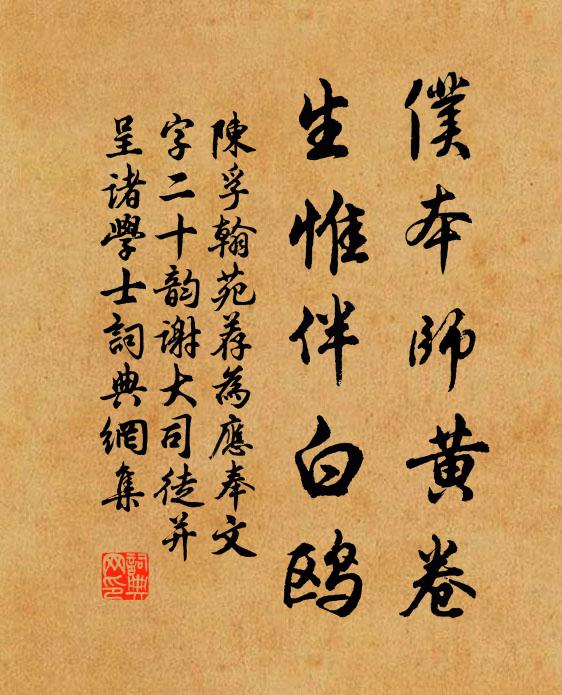 僕本師黄卷
生惟伴白鸥
陳孚翰苑荐為應奉文
字二十韵謝大司徒并
呈诸學士詞典網集
詞典
网印